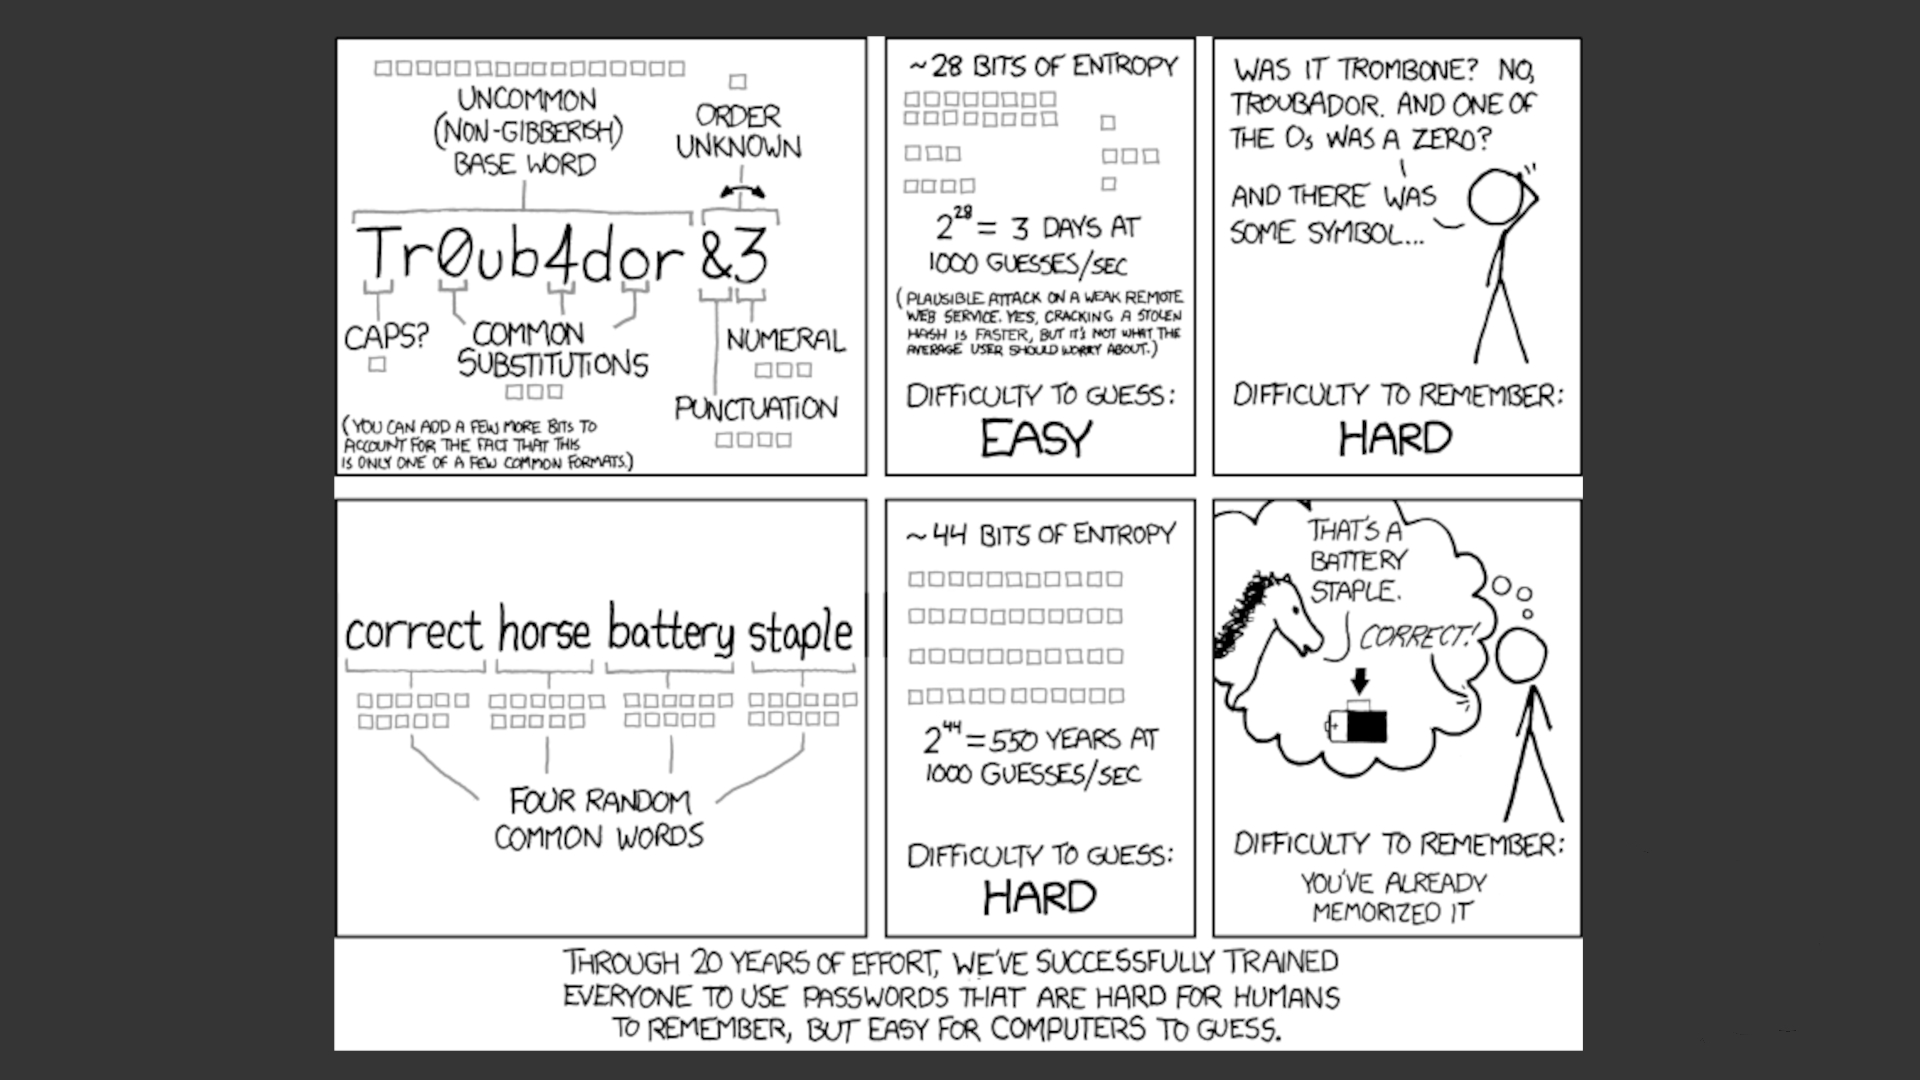 UNCOMMON
(NON-GIBBERISH)
BASE WORD
ORDER
UNKNOWN
Tr0ub4dor &3
CAPS?
COMMON
SUBSTITUTIONS
NUMERAL
PUNCTUATION
(YOU CAN ADD A FEW MORE BITS TO
ACCOUNT FOR THE FACT THAT THIS
IS ONLY ONE OF A FEW COMMON FORMATS.)
~28 BITS OF ENTROPY
2^28 = 3 DAYS AT
1000 GUESSES/SEC
(PLAUSIBLE ATTACK ON A WEAK REMOTE
WEB SERVICE. YES, CRACKING A STOLEN
HASH IS FASTER, BUT IT'S NOT WHAT THE
AVERAGE USER SHOULD WORRY ABOUT.)
DIFFICULTY TO GUESS:
EASY
WAS IT TROMBONE? NO,
TROUBADOR. AND ONE OF
THE Os WAS A ZERO?
AND THERE WAS
SOME SYMBOL...
DIFFICULTY TO REMEMBER:
HARD
correct horse battery staple
FOUR RANDOM
COMMON WORDS
~44 BITS OF ENTROPY
2^44 = 550 YEARS AT
1000 GUESSES/SEC
DIFFICULTY TO GUESS:
HARD
THAT'S A
BATTERY
STAPLE.
CORRECT!
+
DIFFICULTY TO REMEMBER:
YOU'VE ALREADY
MEMORIZED IT
THROUGH 20 YEARS OF EFFORT, WE'VE SUCCESSFULLY TRAINED
EVERYONE TO USE PASSWORDS THAT ARE HARD FOR HUMANS
TO REMEMBER, BUT EASY FOR COMPUTERS TO GUESS.